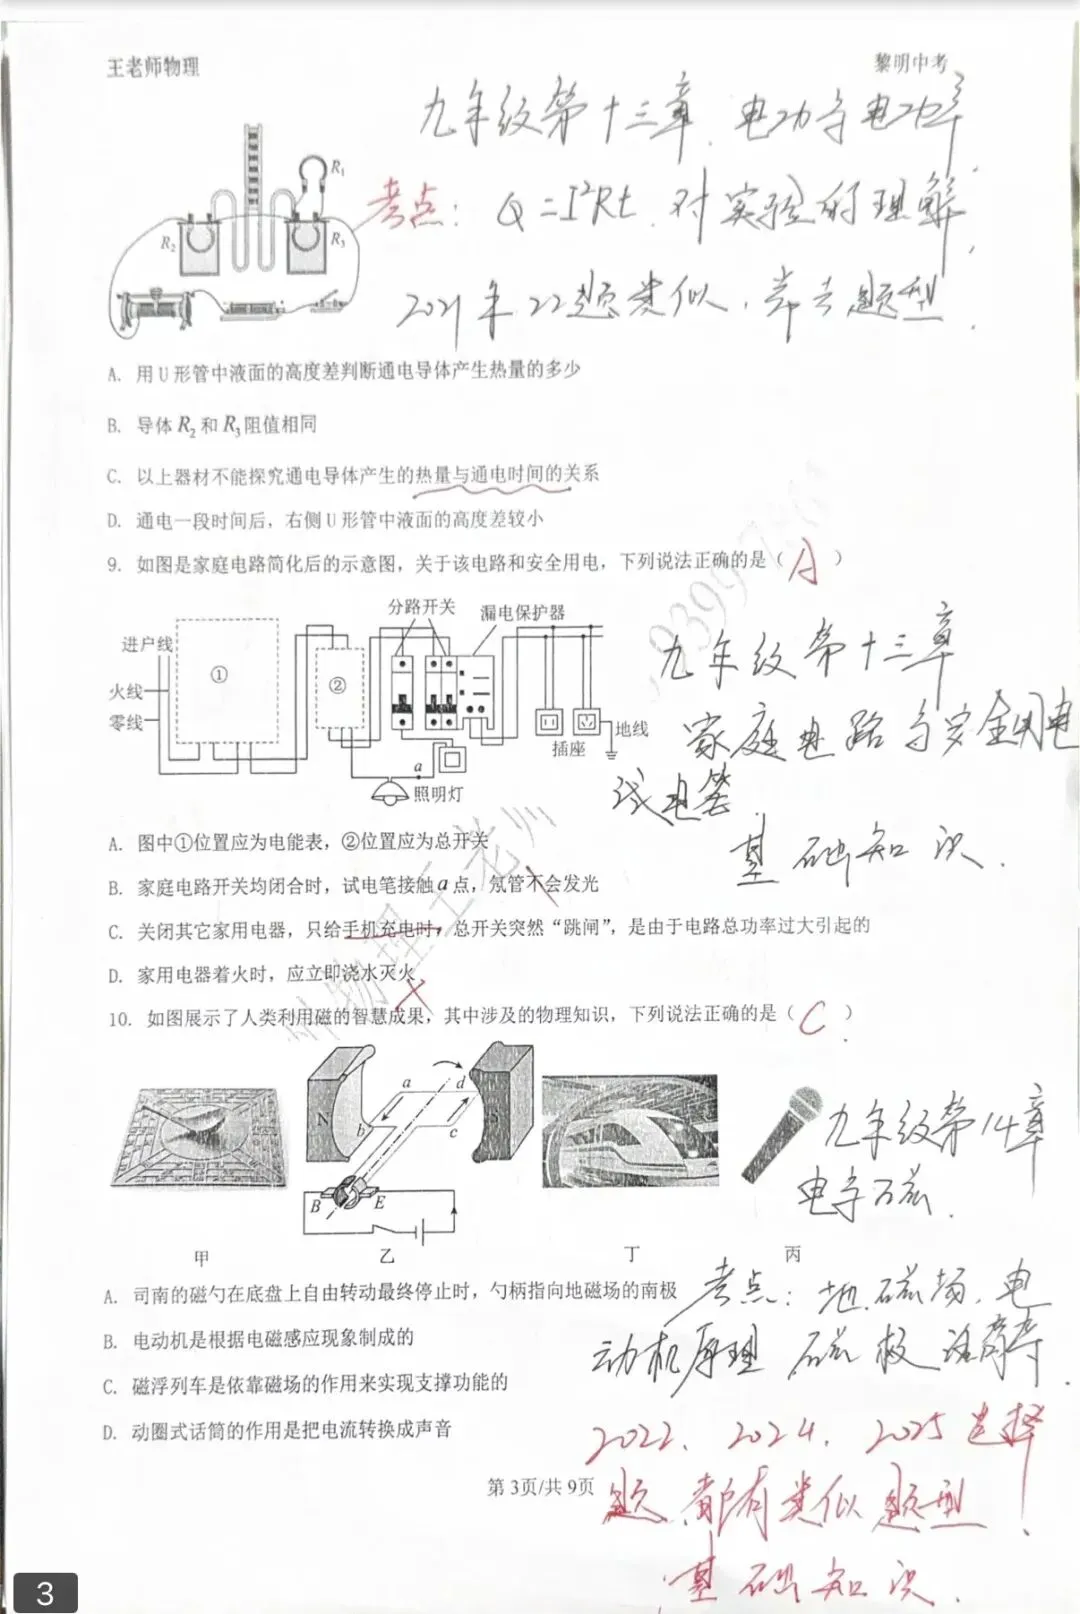 王老师物理
黎明中考
九年级第十三章 电功与电功率
考点: Q=I²Rt. 对实验的理解,
2021年22题类似, 常考题型.
R₁
R₂
R₃
A. 用 U 形管中液面的高度差判断通电导体产生热量的多少
B. 导体 R₂ 和 R₃ 阻值相同
C. 以上器材不能探究通电导体产生的热量与通电时间的关系
D. 通电一段时间后，右侧 U 形管中液面的高度差较小
9. 如图是家庭电路简化后的示意图，关于该电路和安全用电，下列说法正确的是（ A ）
分路开关
漏电保护器
进户线
①
②
火线
零线
地线
插座
a
照明灯
九年级第十三章
家庭电路与安全用电
试电笔.
基础知识.
A. 图中①位置应为电能表，②位置应为总开关
B. 家庭电路开关均闭合时，试电笔接触 a 点，氖管不会发光
C. 关闭其它家用电器，只给手机充电时，总开关突然“跳闸”，是由于电路总功率过大引起的
D. 家用电器着火时，应立即浇水灭火
10. 如图展示了人类利用磁的智慧成果，其中涉及的物理知识，下列说法正确的是（ C ）
N
a
d
b
c
S
B
E
甲
乙
丁
丙
九年级第14章
电与磁.
A. 司南的磁勺在底盘上自由转动最终停止时，勺柄指向地磁场的南极
B. 电动机是根据电磁感应现象制成的
C. 磁浮列车是依靠磁场的作用来实现支撑功能的
D. 动圈式话筒的作用是把电流转换成声音
考点: 地磁场、电
动机原理 磁极 话筒等
2022、2024、2025选择
题都有类似题型!
基础知识.
第 3页/共 9页
物理王老师
3